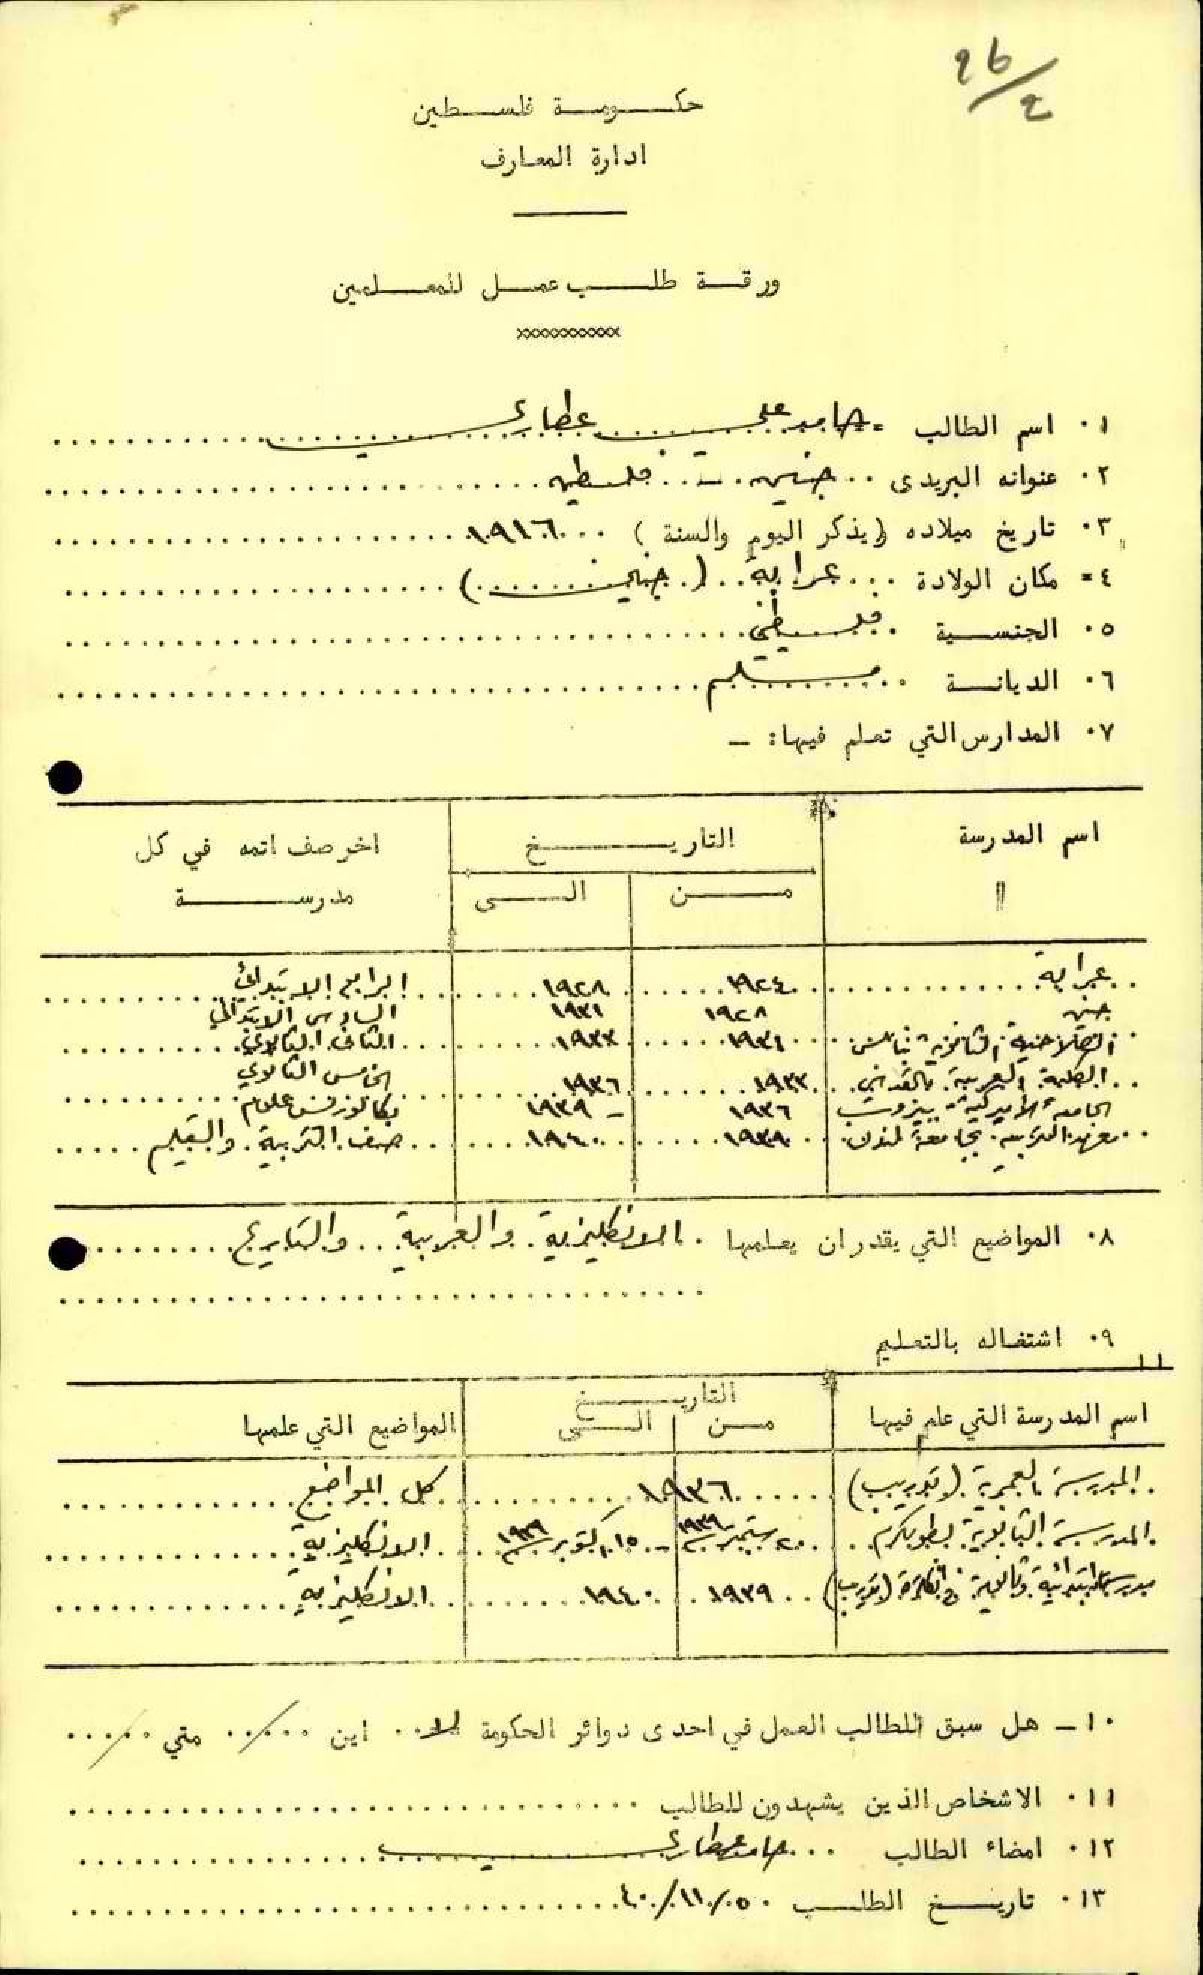 ٩٦/٤
حكومة فلسطين
ادارة المعارف
ورقة طلب عمل للمعلمين
٠١ اسم الطالب حامد علي عطاري
٠٢ عنوانه البريدى جنين - فلسطين
٠٣ تاريخ ميلاده (يذكر اليوم والسنة) ١٩١٦
٤- مكان الولادة عرابة (جنين)
٠٥ الجنسية فلسطيني
٠٦ الديانة مسلم
٠٧ المدارس التي تعلم فيها: -
اسم المدرسة التاريخ اخر صف اتمه في كل
" من الى مدرسة
عرابة ١٩٢٤ ١٩٢٨ الرابع الابتدائي
جنين ١٩٢٨ ١٩٣١ السادس الابتدائي
الصلاحية الثانوية بنابلس ١٩٣١ ١٩٣٣ الثاني الثانوي
الكلية العربية بالقدس ١٩٣٣ ١٩٣٦ الخامس الثانوي
الجامعة الأميركية بيروت ١٩٣٦ - ١٩٣٩ بكالوريوس علوم
معهد التربية بجامعة لندن ١٩٣٩ ١٩٤٠ صف التربية والتعليم
٠٨ المواضيع التي يقدر ان يعلمها الانكليزية والعربية والتاريخ
٠٩ اشتغاله بالتعليم
اسم المدرسة التي علم فيها التاريخ المواضيع التي علمها
من الى
المدرسة العمرية (تدريب) ١٩٣٦ كل المواضيع
المدرسة الثانوية بطولكرم ٢٠ ستمبر ١٩٣٩ - ١٥ اكتوبر ١٩٣٩ الانكليزية
مدرسة ابتدائية وثانوية في انكلترة (تدريب) ١٩٣٩ ١٩٤٠ الانكليزية
١٠- هل سبق للطالب العمل في احدى دوائر الحكومة لا اين / متي /
٠١١ الاشخاص الذين يشهدون للطالب
٠١٢ امضاء الطالب حامد عطاري
٠١٣ تاريخ الطلب ٤٠/١١/٥